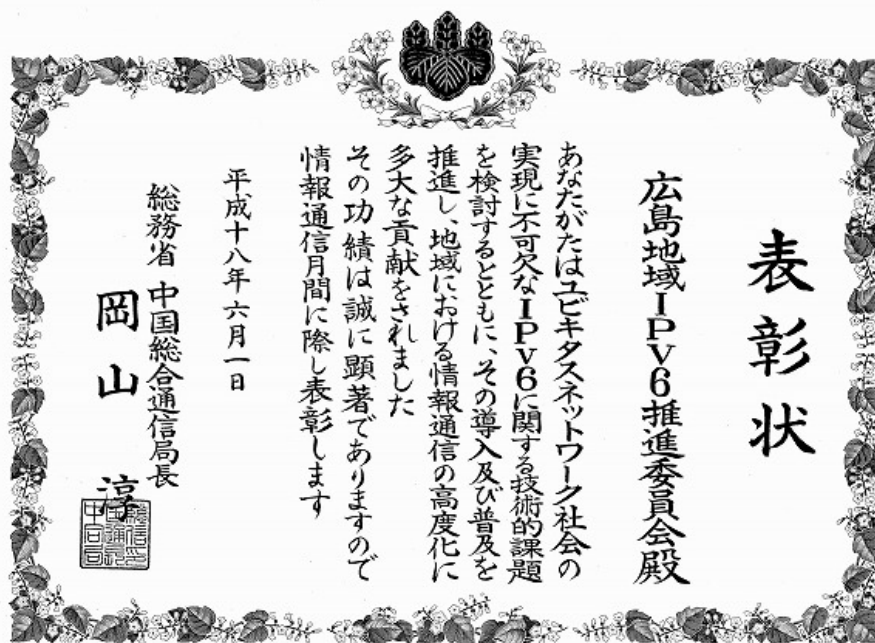 表彰状
広島地域IPv6推進委員会殿
あなたがたはユビキタスネットワーク社会の
実現に不可欠なIPv6に関する技術的課題
を検討するとともに、その導入及び普及を
推進し、地域における情報通信の高度化に
多大な貢献をされました
その功績は誠に顕著でありますので
情報通信月間に際し表彰します
平成十八年六月一日
総務省 中国総合通信局長
岡山 淳